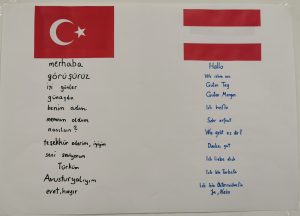 merhaba
görüşürüz
iyi günler
günaydın
benim adım
memnun oldum
nasılsın?
teşekkür ederim, iyiyim
seni seviyorum
Türküm
Avusturyalıyım
evet, hayır
Hallo
Guten Tag
Guten Morgen
Ich heiße
Sehr erfreut
Wie geht es dir?
Danke gut
Ich liebe dich
Ich bin
Ich bin
Ja, Nein